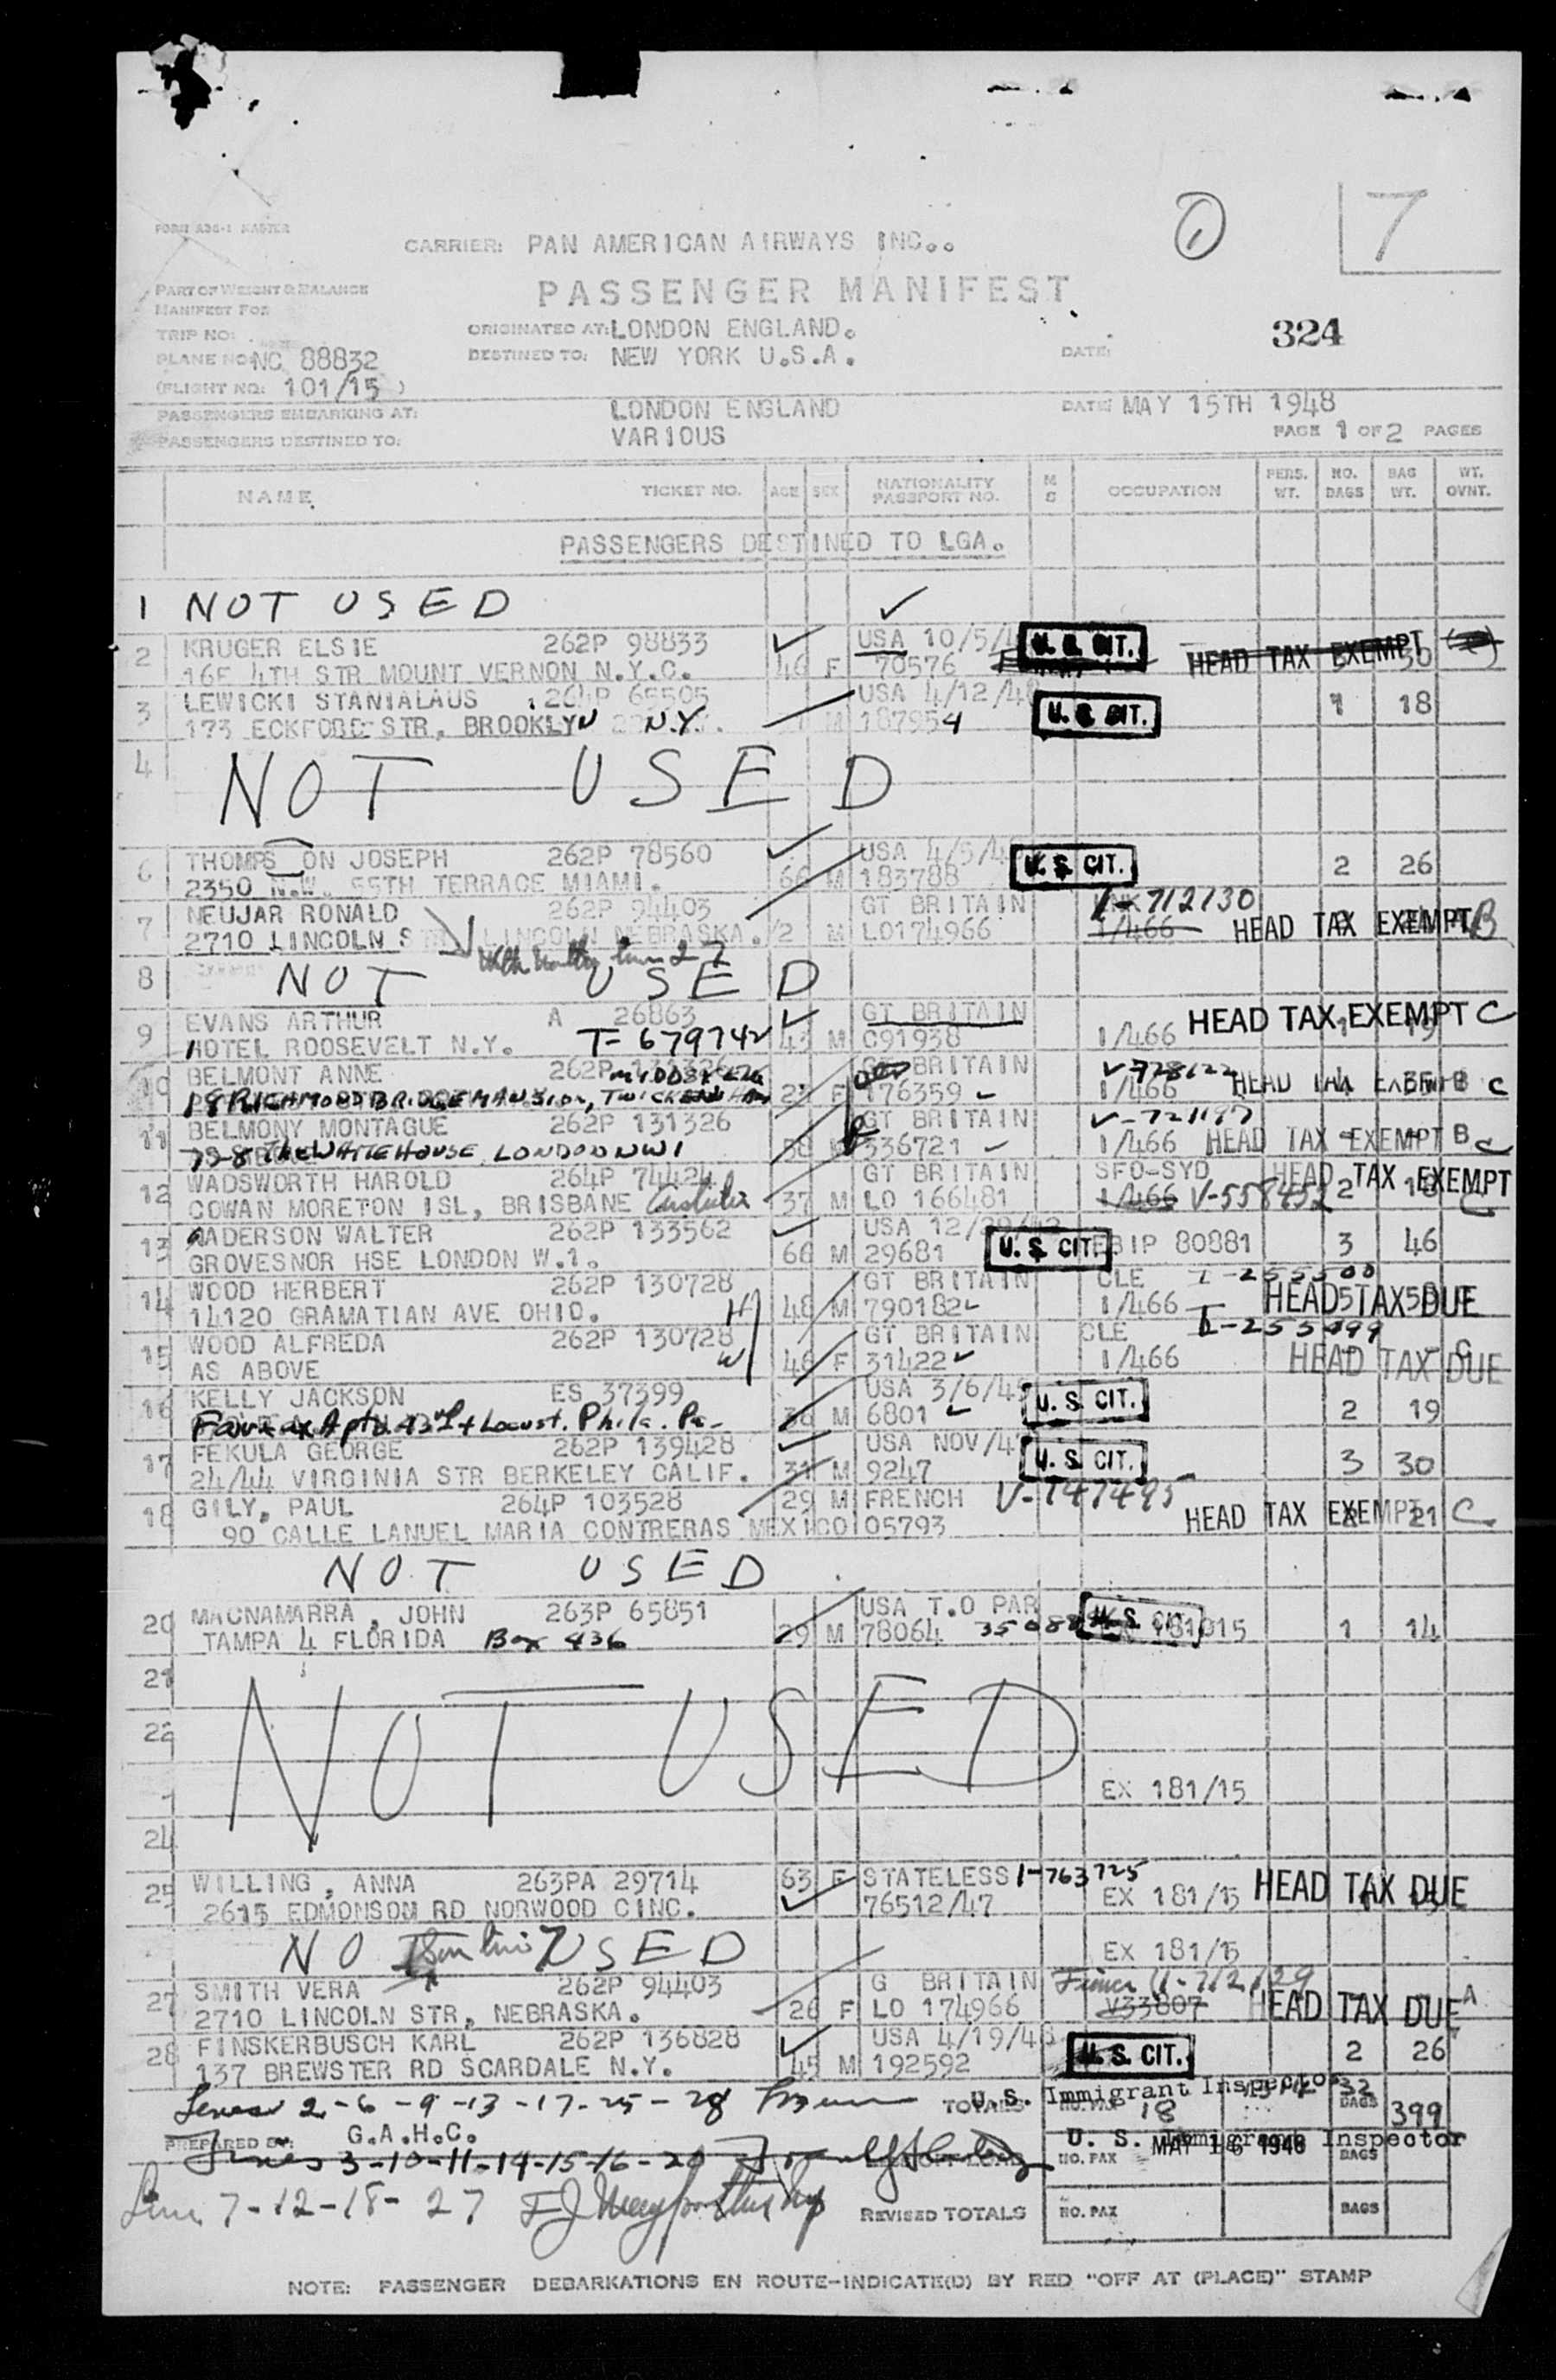 1 7
FORM A36-1 MASTER
CARRIER: PAN AMERICAN AIRWAYS INC..
PART OF WEIGHT & BALANCE
PASSENGER MANIFEST
MANIFEST FOR
TRIP NO:
ORIGINATED AT: LONDON ENGLAND.
324
PLANE NO: NC 88832
DESTINED TO: NEW YORK U.S.A.
DATE:
(FLIGHT NO: 101/15 )
PASSENGERS EMBARKING AT: LONDON ENGLAND DATE: MAY 15TH 1948
PASSENGERS DESTINED TO: VARIOUS PAGE 1 OF 2 PAGES
NAME TICKET NO. AGE SEX NATIONALITY PASSPORT NO. M S OCCUPATION PERS. WT. NO. BAGS BAG WT. WT. OVNT.
PASSENGERS DESTINED TO LGA.
1 NOT USED
2 KRUGER ELSIE 262P 98833 USA 10/5/4 U. S. CIT. HEAD TAX EXEMPT
16E 4TH STR MOUNT VERNON N.Y.C. 46 F 70576
3 LEWICKI STANIALAUS 264P 65505 USA 4/12/48 U. S. CIT. 1 18
173 ECKFORD STR, BROOKLYN N.Y. M 187954
4 NOT USED
6 THOMPSON JOSEPH 262P 78560 USA 4/5/4 U. S. CIT. 2 26
2350 N.W. 55TH TERRACE MIAMI. 66 M 183788
7 NEUJAR RONALD 262P 94403 GT BRITAIN V-712130
2710 LINCOLN STR LINCOLN NEBRASKA. /2 M LO174966 1/466 HEAD TAX EXEMPT B
With mother line 27
8 NOT USED
9 EVANS ARTHUR A 26863 GT BRITAIN HEAD TAX EXEMPT C
HOTEL ROOSEVELT N.Y. T-679742 43 M C91938 1/466
10 BELMONT ANNE 262P MIDDSX ENG GT BRITAIN V-728122
18 RICHMOND BRIDGE MANSION, TWICKENHAM F 176359 1/466 HEAD TAX EXEMPT C
11 BELMONY MONTAGUE 262P 131326 GT BRITAIN V-721197
728 THE WHITEHOUSE LONDON NW1 336721 1/466 HEAD TAX EXEMPT B C
12 WADSWORTH HAROLD 264P 74424 GT BRITAIN SFO-SYD HEAD TAX EXEMPT
COWAN MORETON ISL, BRISBANE Australia 37 M LO 166481 1/466 V-558452 2 C
13 ANDERSON WALTER 262P 133562 USA 12/ U. S. CIT. 80881 3 46
GROVESNOR HSE LONDON W.1. 66 M 29681
14 WOOD HERBERT 262P 130728 GT BRITAIN CLE I-255500
14120 GRAMATIAN AVE OHIO. H 48 M 790182 1/466 HEAD TAX DUE
15 WOOD ALFREDA 262P 130728 GT BRITAIN CLE I-255499
AS ABOVE W 46 F 31422 1/466 HEAD TAX DUE
16 KELLY JACKSON ES 37399 USA 3/6/4 U. S. CIT.
Fairfax Apts. 43rd + Locust. Phila. Pa. M 6801 2 19
17 FEKULA GEORGE 262P 139428 USA NOV/4 U. S. CIT.
24/44 VIRGINIA STR BERKELEY CALIF. 31 M 9247 3 30
18 GILY, PAUL 264P 103528 29 M FRENCH V-747495
90 CALLE LANUEL MARIA CONTRERAS MEXICO 05793 HEAD TAX EXEMPT 21 C
NOT USED
20 MACNAMARRA, JOHN 263P 65851 USA T.O PAR U. S. CIT.
TAMPA 4 FLORIDA Box 436 29 M 78064 1 14
21
22 NOT USED
EX 181/15
24
25 WILLING, ANNA 263PA 29714 63 F STATELESS 1-763725
2615 EDMONSOM RD NORWOOD CINC. 76512/47 EX 181/15 HEAD TAX DUE
NOT USED EX 181/15
27 SMITH VERA 262P 94403 G BRITAIN V-712129
2710 LINCOLN STR, NEBRASKA. 26 F LO 174966 V33807 HEAD TAX DUE A
28 FINSKERBUSCH KARL 262P 136828 USA 4/19/48 U. S. CIT. 2 26
137 BREWSTER RD SCARDALE N.Y. 45 M 192592
Lines 2-6-9-13-17-25-28 TOTALS U.S. Immigrant Inspector NO. PAX 18 32 BAGS 399
PREPARED BY: G.A.H.C. U. S. Immigrant Inspector MAY 16 1948
Lines 3-10-11-14-15-16-20 NO. PAX BAGS
Line 7-12-18-27 REVISED TOTALS NO. PAX BAGS
NOTE: PASSENGER DEBARKATIONS EN ROUTE-INDICATE(D) BY RED "OFF AT (PLACE)" STAMP